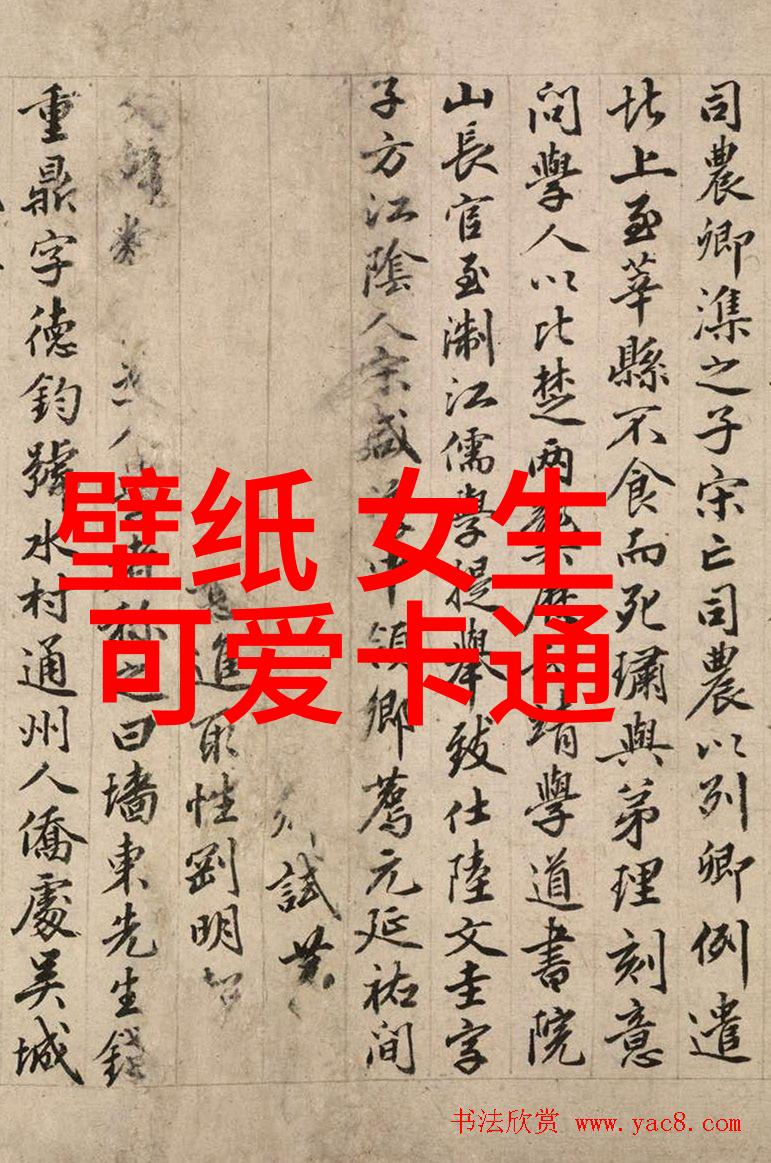 司農卿潗之子宋亡司農以列卿例遣
北上至莘縣不食而死璛與弟理刻意
問學人以比楚两龔歷靖學道書院
山長官至淛江儒學提舉致仕陸文圭字
子方江陰人宋咸中領鄉薦元延祐间
試
進取性剛明
人稱之曰墻東先生錢
重鼎字德鈞號水村通州人僑處吳城
壁纸 女生
可爱卡通
书法欣赏 www.yac8.com